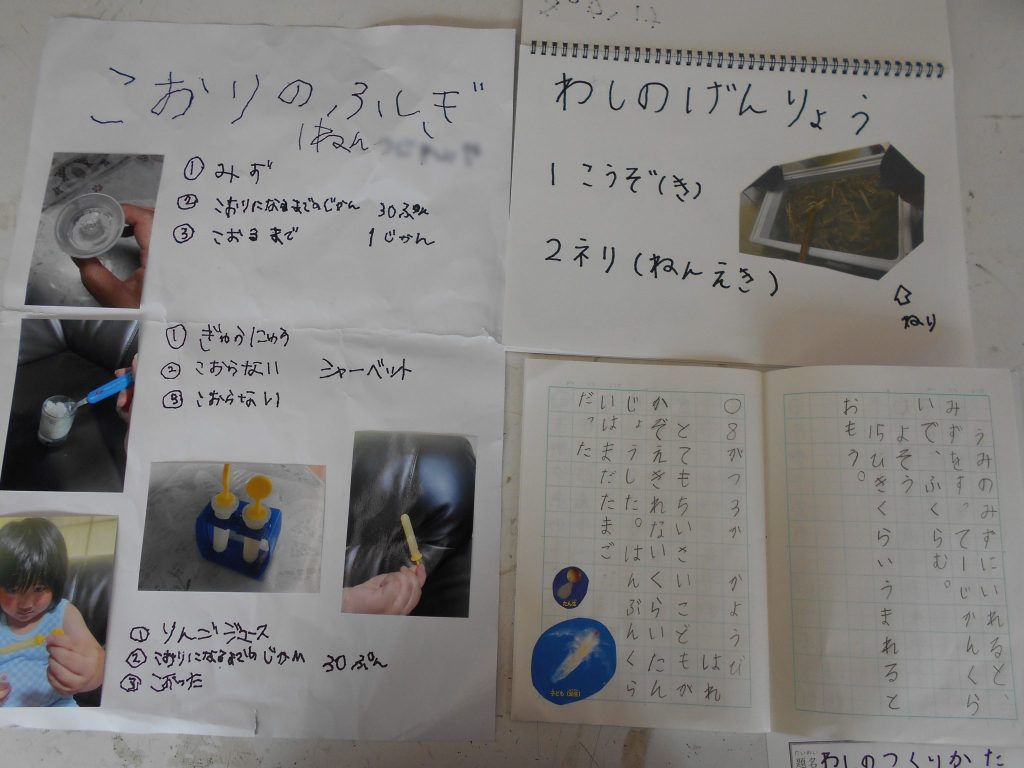 こおりのふしぎ
1ねん
① みず
② こおりになるまでのじかん 30ぷん
③ こおるまで 1じかん
① ぎゅうにゅう
② こおらない シャーベット
③ こおらない
① りんごジュース
② こおりになるまでのじかん 30ぷん
③ こおった
わしのげんりょう
1 こうぞ(き)
2 ネリ(ねんえき)
ねり
うみのみずにいれると、
みずをすって一じかんくら
いで、ふくらむ。
よそう
15ひきくらいうまれると
おもう。
○8がつ3か かようび はれ
とてもちいさいこどもが
かぞえきれないくらいたん
じょうした。はんぶんくら
いはまだたまご
だった
たん生
子ども(幼生)
だいめい
題名 わしのつくりかた